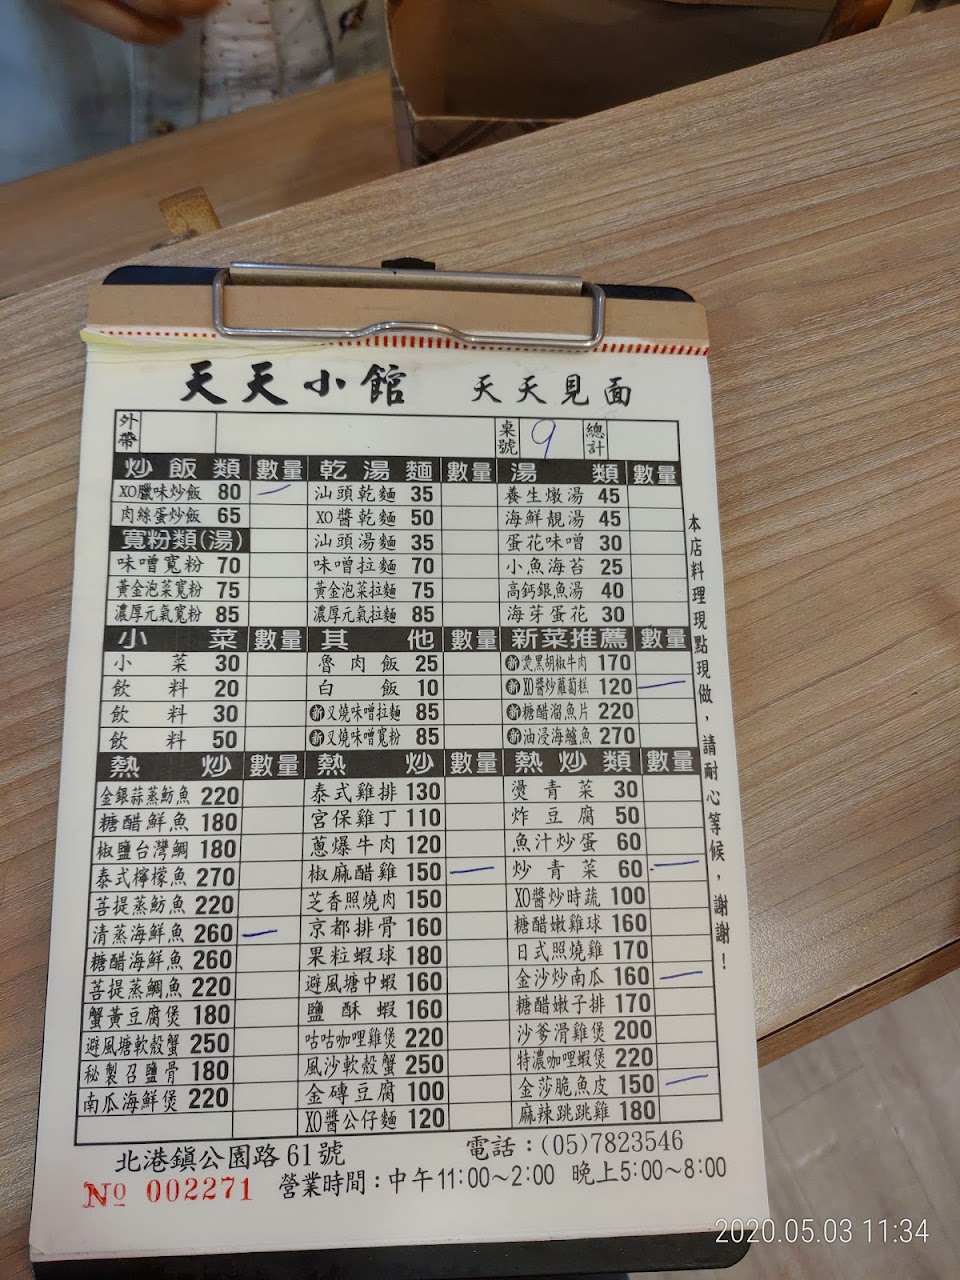 天天小館 天天見面
外帶 桌號 9 總計
炒飯類 數量 乾湯麵 數量 湯類 數量
XO臘味炒飯 80 一 汕頭乾麵 35 養生燉湯 45
肉絲蛋炒飯 65 XO醬乾麵 50 海鮮靚湯 45
寬粉類(湯) 汕頭湯麵 35 蛋花味噌 30
味噌寬粉 70 味噌拉麵 70 小魚海苔 25
黃金泡菜寬粉 75 黃金泡菜拉麵 75 高鈣銀魚湯 40
濃厚元氣寬粉 85 濃厚元氣拉麵 85 海芽蛋花 30
小菜 數量 其他 數量 新菜推薦 數量
小菜 30 魯肉飯 25 新 黑胡椒牛肉 170
飲料 20 白飯 10 新XO醬炒蘿蔔糕 120 一
飲料 30 新叉燒味噌拉麵 85 新糖醋溜魚片 220
飲料 50 新叉燒味噌寬粉 85 新油浸海鱸魚 270
熱炒 數量 熱炒 數量 熱炒類 數量
金銀蒜蒸魴魚 220 泰式雞排 130 燙青菜 30
糖醋鮮魚 180 宮保雞丁 110 炸豆腐 50
椒鹽台灣鯛 180 蔥爆牛肉 120 魚汁炒蛋 60
泰式檸檬魚 270 椒麻醋雞 150 一 炒青菜 60 一
菩提蒸魴魚 220 芝香照燒肉 150 XO醬炒時蔬 100
清蒸海鮮魚 260 一 京都排骨 160 糖醋嫩雞球 160
糖醋海鮮魚 260 果粒蝦球 180 日式照燒雞 170
菩提蒸鯛魚 220 避風塘中蝦 160 金沙炒南瓜 160 一
蟹黃豆腐煲 180 鹽酥蝦 160 糖醋嫩子排 170
避風塘軟殼蟹 250 咕咕咖哩雞煲 220 沙爹滑雞煲 200
秘製召鹽骨 180 風沙軟殼蟹 250 特濃咖哩蝦煲 220
南瓜海鮮煲 220 金磚豆腐 100 金莎脆魚皮 150 一
XO醬公仔麵 120 麻辣跳跳雞 180
本店料理現點現做，請耐心等候，謝謝！
北港鎮公園路61號 電話：(05)7823546
№ 002271 營業時間：中午11:00~2:00 晚上5:00~8:00
2020.05.03 11:34